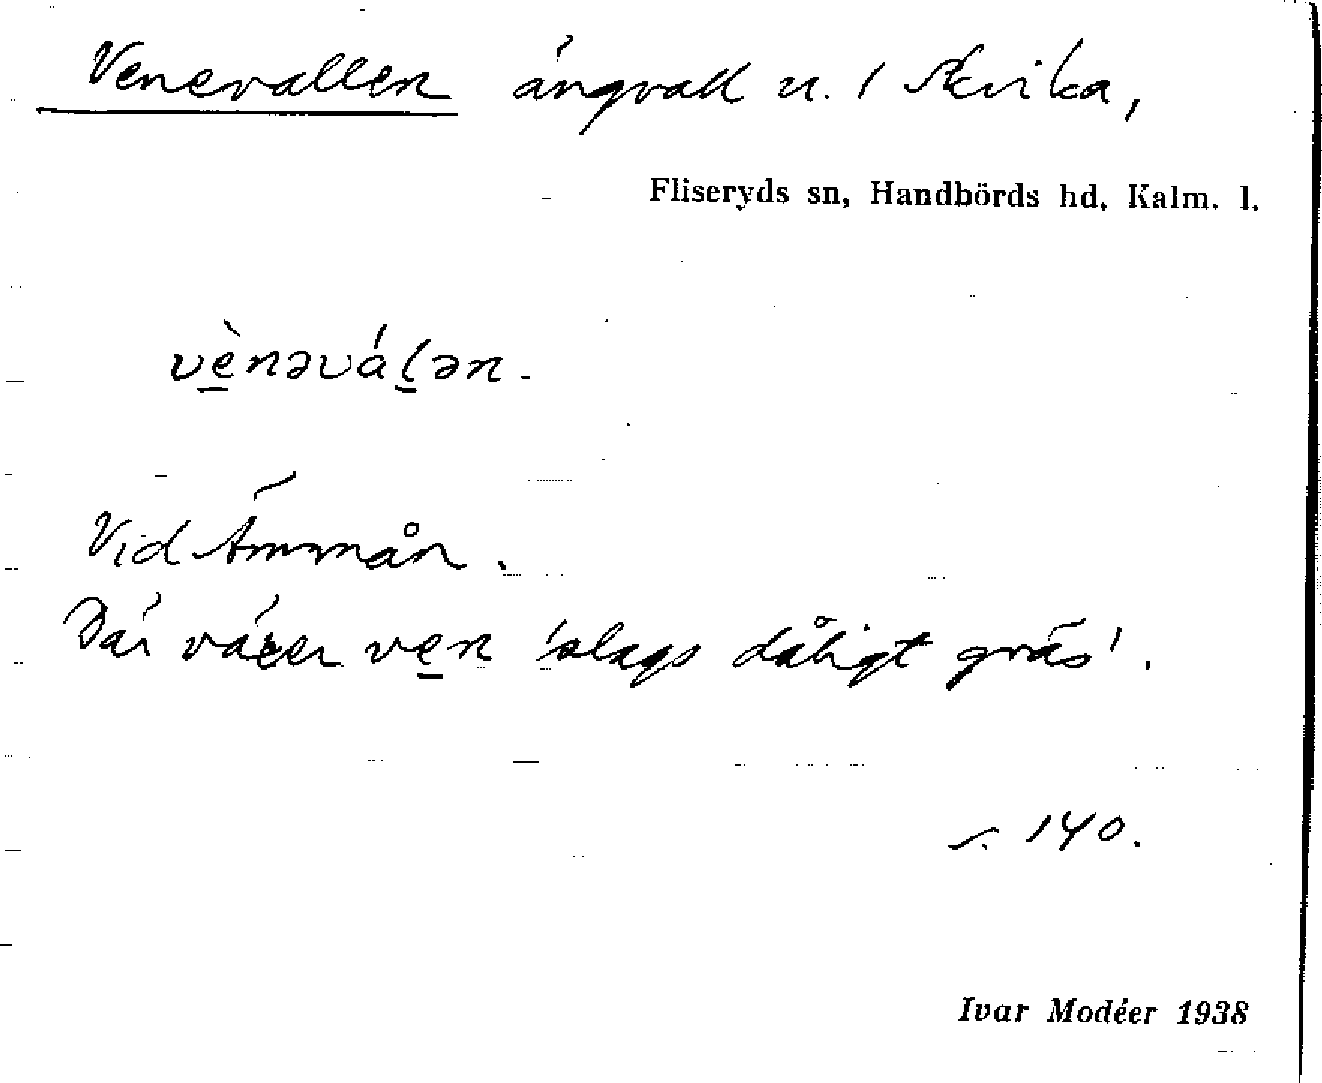 Venevallen ängvall n. 1 Skvika,
Fliseryds sn, Handbörds hd, Kalm. l.
vènəváḷən.
Vid Ämmån.
Där växer ve̲n 'slags dåligt gräs'.
s. 140.
Ivar Modéer 1938